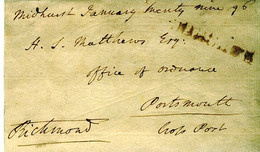 Midhurst January twenty nine 96
H. S. Matthews Esqr.
Office of Ordnance
Portsmouth
Richmond
Cross Post